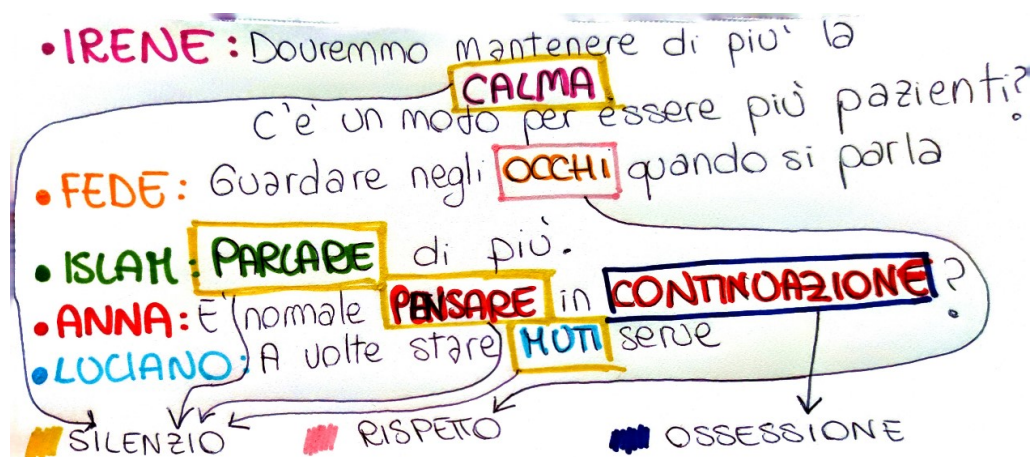 • IRENE: Dovremmo mantenere di piu' la
CALMA
c'e' un modo per essere più pazienti?
• FEDE: Guardare negli OCCHI quando si parla
• ISLAM: PARLARE di più.
• ANNA: E' normale PENSARE in CONTINUAZIONE?
• LUCIANO: A volte stare MUTI serve
SILENZIO RISPETTO OSSESSIONE